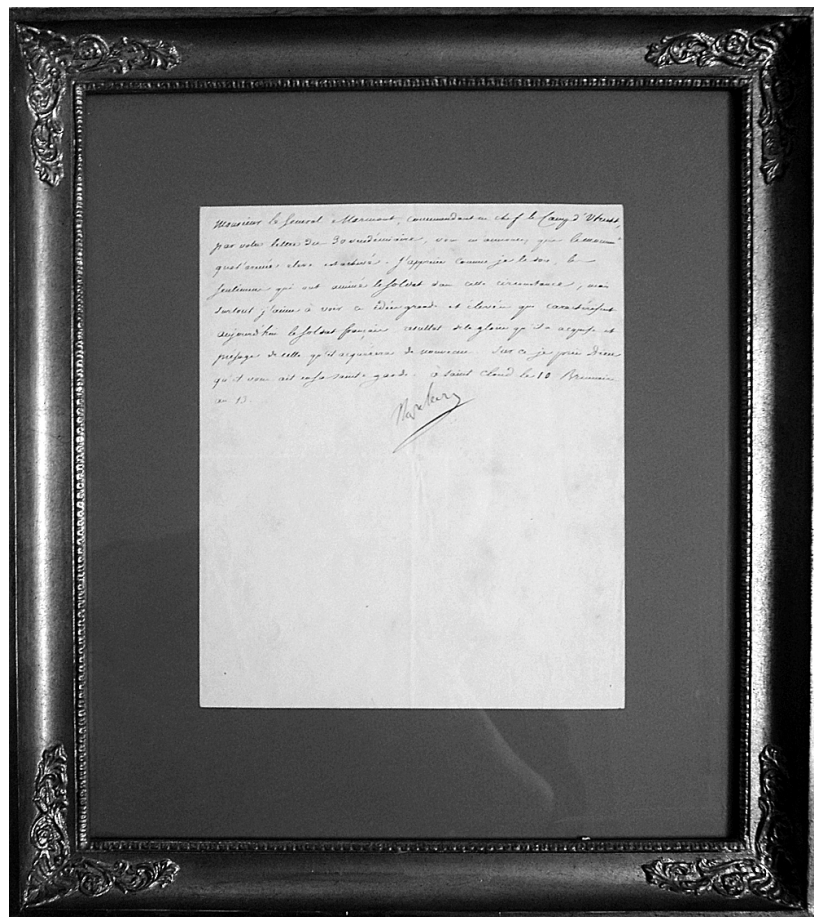 Monsieur le General Marmont, commandant en chef le Camp d'Utrecht,
par votre lettre du 30 vendémiaire, vous m'annoncez que le monum^t
qu'a l'armée élevé est achevé. J'apprécie comme je le dois, le
sentiment qui ont animé le soldat dans cette circonstance, mais
surtout j'aime à voir ces idées grandes et élevées qui caractérisent
aujourd'hui le soldat français résultat de la gloire qu'il a acquise et
présage de celle qu'il acquerera de nouveau. Sur ce je prie Dieu
qu'il vous ait en sa sainte garde. à Saint Cloud le 10 Brumaire
an 13.